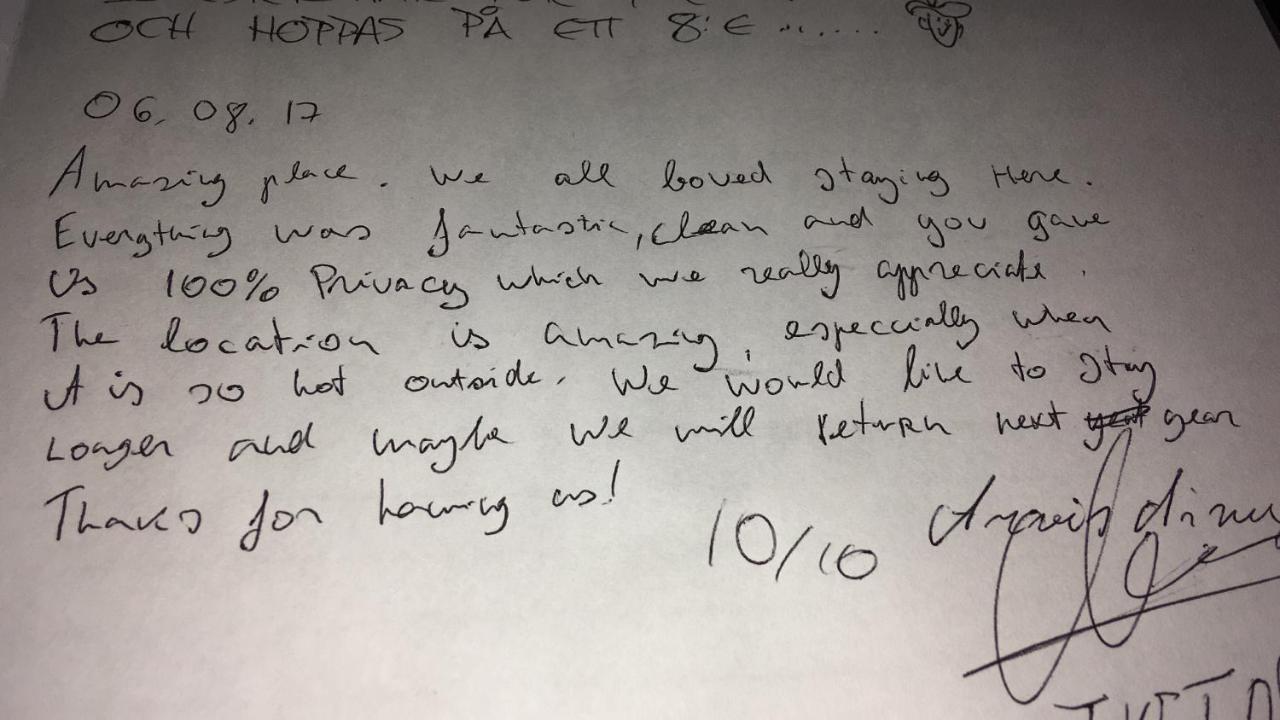 OCH HOPPAS PÅ ETT 8:E ......
06. 08. 17
Amazing place. We all loved staying Here.
Everything was fantastic, clean and you gave
Us 100% Privacy which we really appreciate.
The location is amazing, especcially when
it is so hot outside. We would like to stay
Longer and maybe we will return next year
Thanks for having us!
10/10